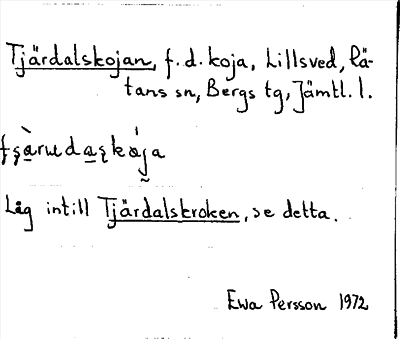 Tjärdalskojan, f.d. koja, Lillsved, Rä-
tans sn, Bergs tg, Jämtl. l.
Låg intill Tjärdalskroken, se detta.
Ewa Persson 1972